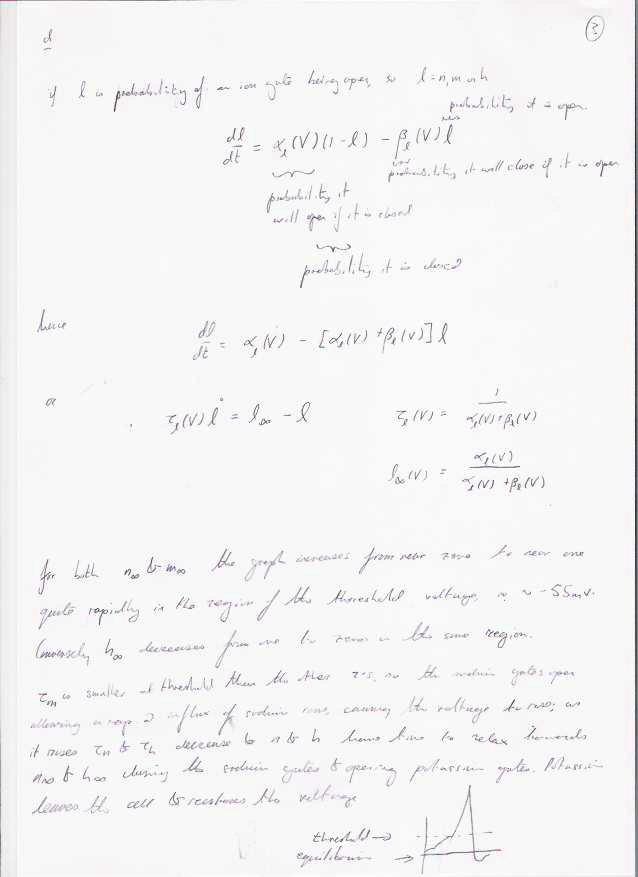 d
3
if l is probability of an ion gate being open, so l = n, m or h
probability it is open
dl/dt = α_l(V)(1 - l) - β_l(V) l
probability it will close if it is open
probability it
will open if it is closed
probability it is closed
hence
dl/dt = α_l(V) - [α_l(V) + β_l(V)] l
or
τ_l(V) l̇ = l_∞ - l
τ_l(V) = 1 / (α_l(V) + β_l(V))
l_∞(V) = α_l(V) / (α_l(V) + β_l(V))
for both n_∞ & m_∞ the graph increases from near zero to near one
quite rapidly in the region of the threshold voltage, ~ -55mV.
Conversely h_∞ decreases from one to zero in the same region.
τ_m is smaller at threshold than the other τs, so the sodium gates open
allowing a rapid influx of sodium ions, causing the voltage to rise; as
it rises τ_n & τ_h decrease & n & h have time to relax towards
n_∞ & h_∞ closing the sodium gates & opening potassium gates. Potassium
leaves the cell & restores the voltage
threshold →
equilibrium →